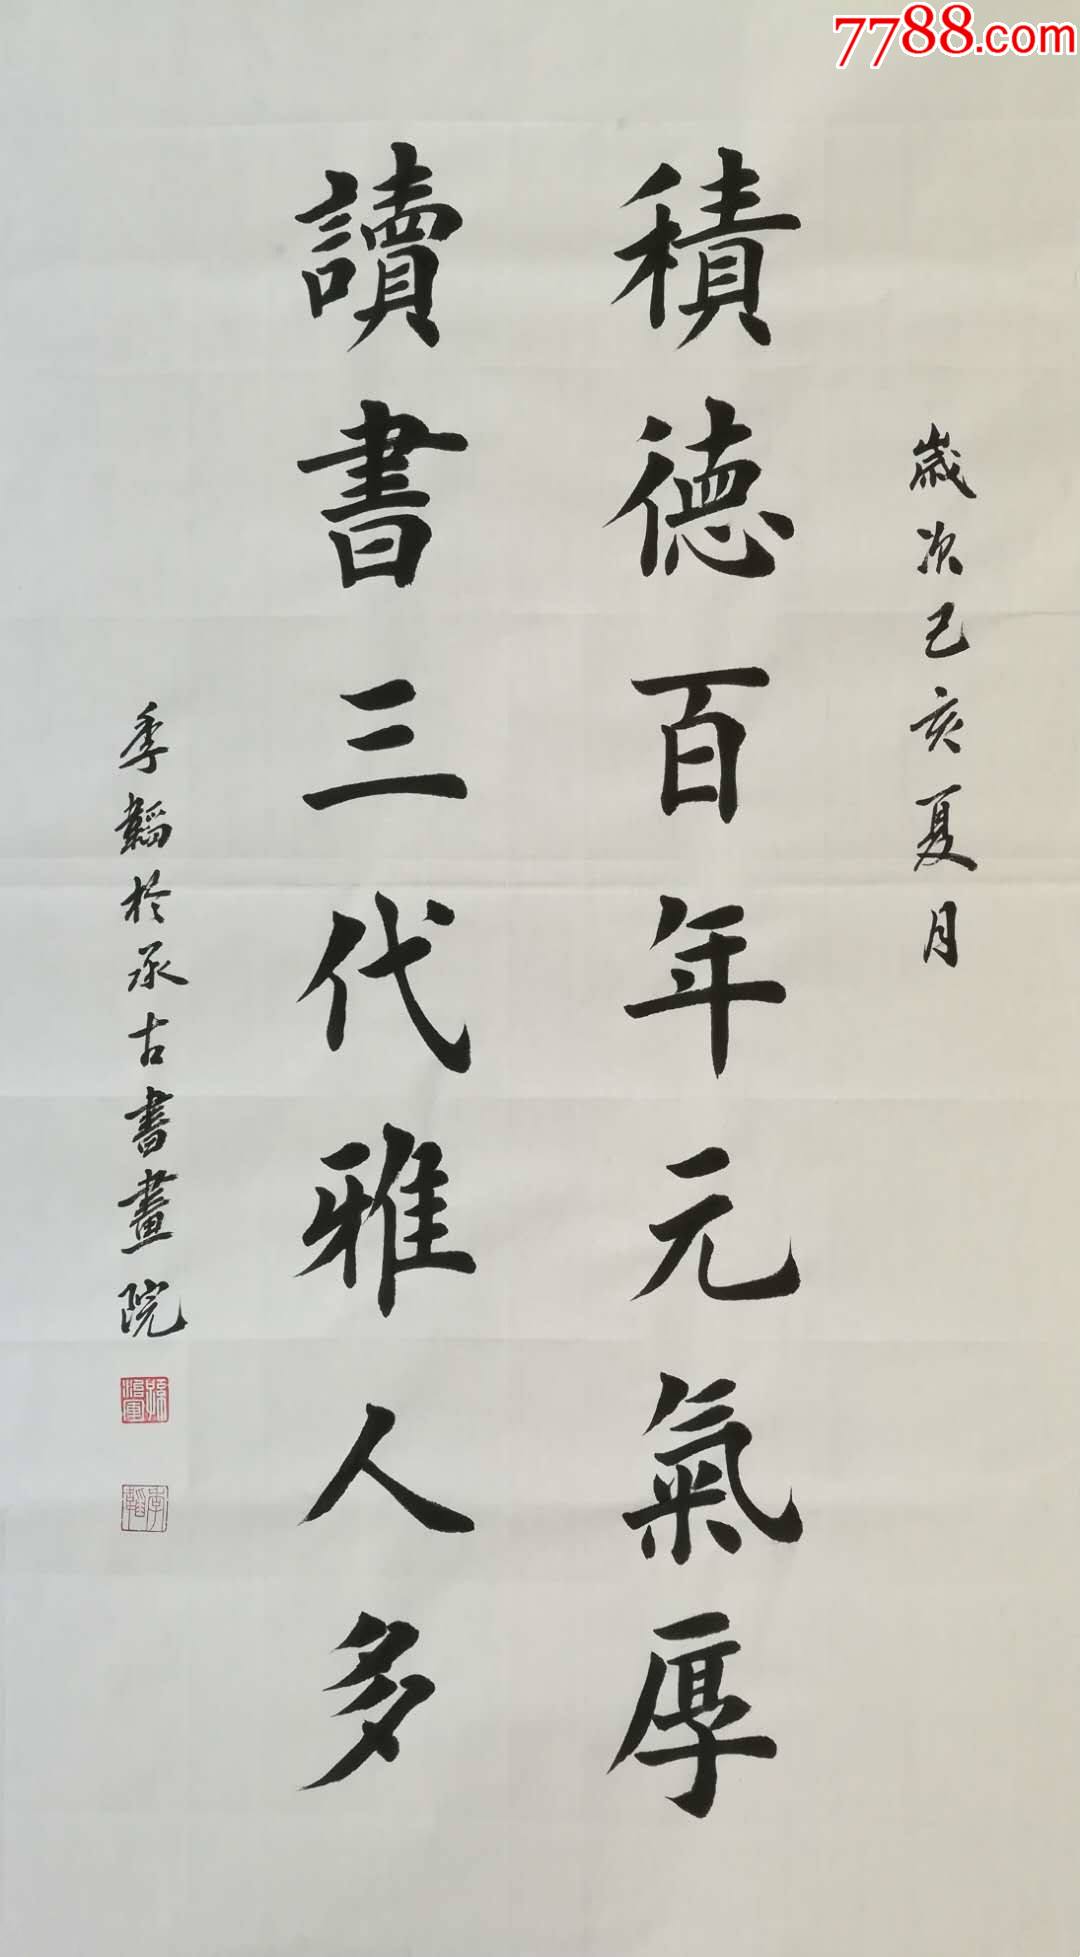 7788.com
歲次己亥夏月
積德百年元氣厚
讀書三代雅人多
季韜於承古書畫院